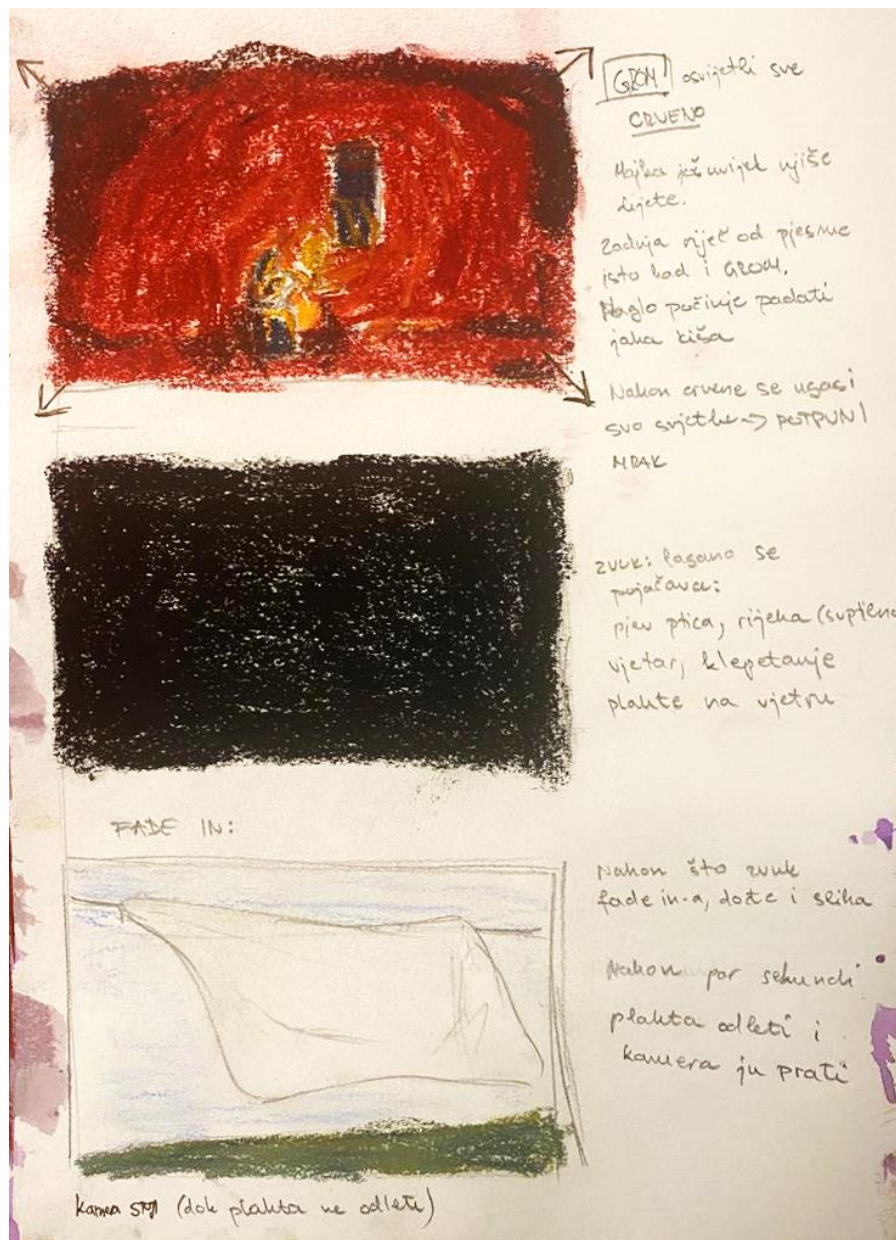 GROM osvijetli sve
CRVENO
Majka još uvijek njiše
dijete.
Zadnja riječ od pjesme
isto kad i GROM.
Naglo počinje padati
jaka kiša
Nakon crvene se ugasi
svo svjetlo → POTPUNI
MRAK
ZVUK: lagano se
pojačava:
pjev ptica, rijeka (suptilno
vjetar, klepetanje
plahte na vjetru
FADE IN:
Nakon što zvuk
fade in-a, dođe i slika
Nakon par sekundi
plahta odleti i
kamera ju prati
kamera STOJI (dok plahta ne odleti)